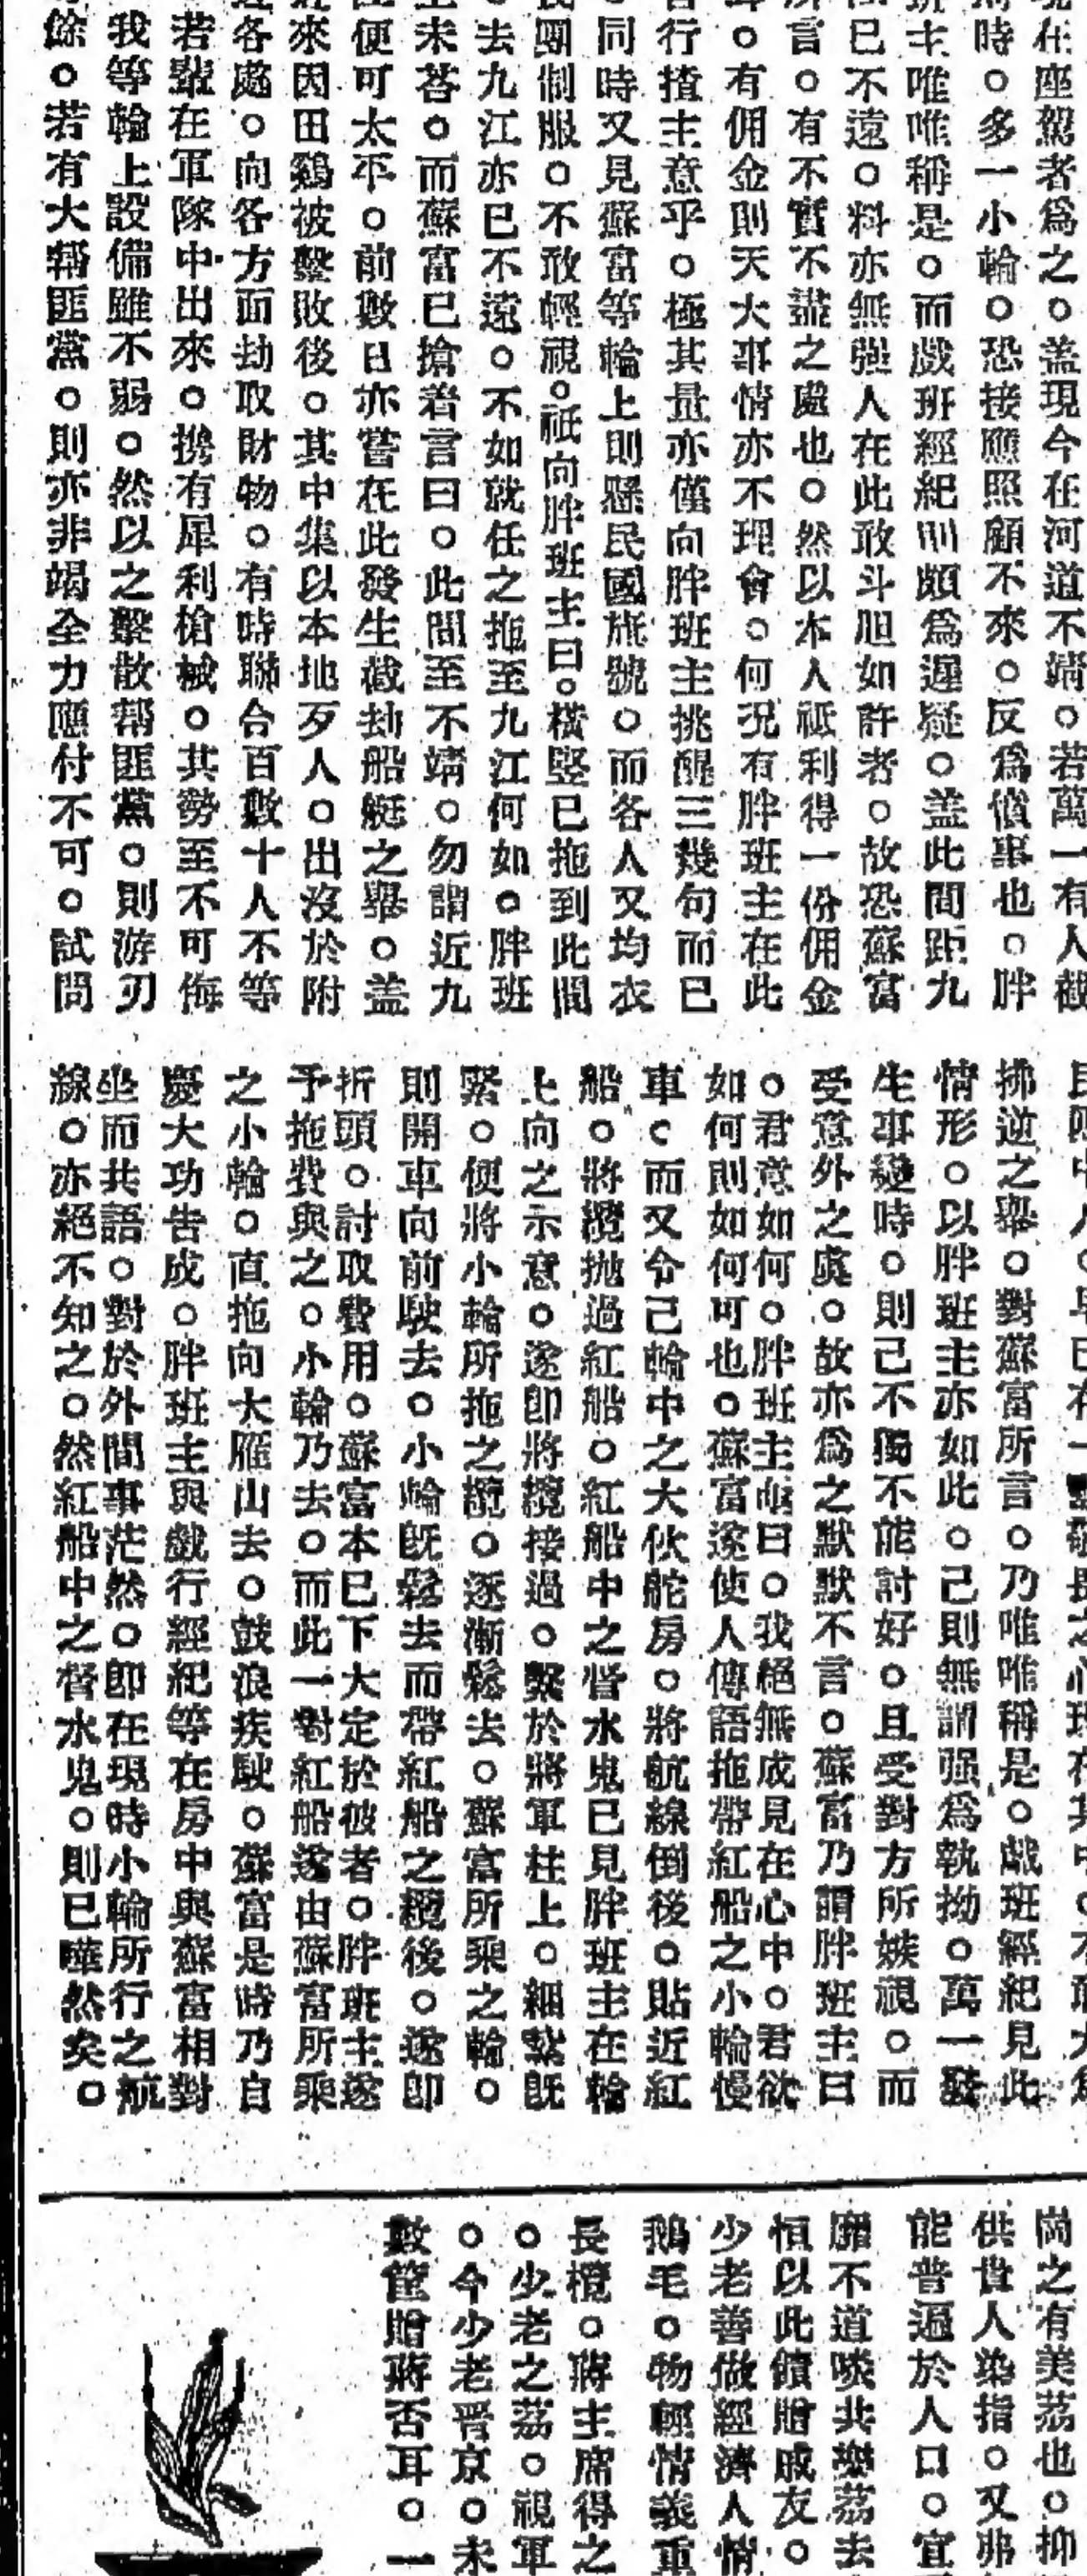 現在座駕者爲之。盖現今在河道不靖。若萬一有人截
時。多一小輪。恐接應照顧不來。反爲僨事也。胖
班主唯唯稱是。而戲班經紀則頗爲遲疑。盖此間距九
已不遠。料亦無强人在此敢斗胆如許者。故恐蘇富
所言。有不實不盡之處也。然以本人祗利得一份佣金
。有佣金則天大事情亦不理會。何况有胖班主在此
行揸主意乎。極其量亦僅向胖班主挑醒三幾句而已
。同時又見蘇富等輪上則懸民國旂號。而各人又均衣
團制服。不敢輕視。祗向胖班主曰。橫竪已拖到此間
。去九江亦已不遠。不如就任之拖至九江何如。胖班
主未荅。而蘇富已搶着言曰。此間至不靖。勿謂近九
便可太平。前數日亦嘗在此發生截刼船艇之舉。盖
近來因田鷄被擊敗後。其中集以本地歹人。出沒於附
近各處。向各方面刼取財物。有時聯合百數十人不等
若輩在軍隊中出來。携有犀利槍械。其勢至不可侮
我等輪上設備雖不弱。然以之擊散帮匪黨。則游刃
餘。若有大帮匪黨。則亦非竭全力應付不可。試問
拂逆之舉。對蘇富所言。乃唯唯稱是。戲班經紀見此
情形。以胖班主亦如此。己則無謂强爲執拗。萬一發
生事變時。則己不獨不能討好。且受對方所嫉視。而
受意外之虞。故亦爲之默默不言。蘇富乃謂胖班主曰
。君意如何。胖班主曰。我絕無成見在心中。君欲
如何則如何可也。蘇富遂使人傳語拖帶紅船之小輪慢
車。而又令己輪中之大伙舵房。將航線倒後。貼近紅
船。將纜抛過紅船。紅船中之督水鬼已見胖班主在輪
上向之示意。遂即將纜接過。繫於將軍柱上。細繫既
緊。便將小輪所拖之纜。逐漸鬆去。蘇富所乘之輪。
則開車向前駛去。小輪既鬆去而帶紅船之纜後。遂即
折頭。討取費用。蘇富本已下大定於彼者。胖班主遂
予拖費與之。小輪乃去。而此一對紅船遂由蘇富所乘
之小輪。直拖向大雁山去。鼓浪疾駛。蘇富是時乃自
慶大功告成。胖班主與戲行經紀等在房中與蘇富相對
坐而共語。對於外間事茫然。即在現時小輪所行之航
線。亦絕不知之。然紅船中之督水鬼。則已嘩然矣。
崗之有美荔也。抑
供貴人染指。又弗
能普遍於人口。宜
靡不道啖共樂荔去
恒以此饋贈戚友。
少老善做經濟人情
鵝毛。物輕情義重
長欖。蔣主席得之
。少老之荔。視軍
。今少老晋京。未
數筐贈蔣否耳。一